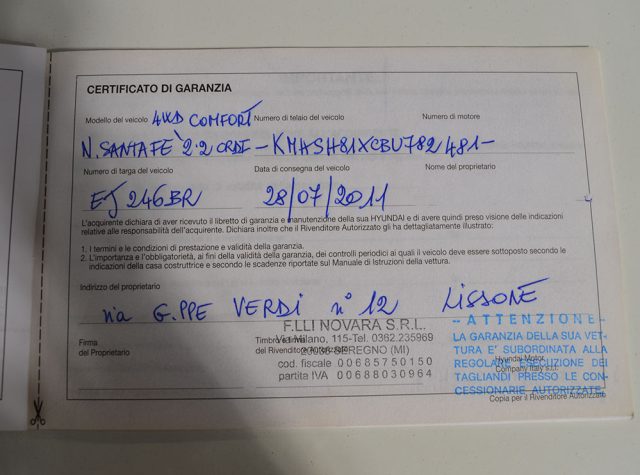 CERTIFICATO DI GARANZIA
Modello del veicolo 4WD COMFORT Numero di telaio del veicolo Numero di motore
N. SANTAFE' 2.2 CRDI - KMHSH81XCBU782481-
Numero di targa del veicolo Data di consegna del veicolo Nome del proprietario
EJ 246BR 28/07/2011
L'acquirente dichiara di aver ricevuto il libretto di garanzia e manutenzione della sua HYUNDAI e di avere quindi preso visione delle indicazioni
relative alle responsabilità dell'acquirente. Dichiara inoltre che il Rivenditore Autorizzato gli ha dettagliatamente illustrato:
1. I termini e le condizioni di prestazione e validità della garanzia.
2. L'importanza e l'obbligorietà, ai fini della validità della garanzia, dei controlli periodici ai quali il veicolo deve essere sottoposto secondo le
indicazioni della casa costruttrice e secondo le scadenze riportate sul Manuale di Istruzioni della vettura.
Indirizzo del proprietario
via G.PPE VERDI n° 12 LISSONE
Firma
del Proprietario
Timbro e firma
del Rivenditore Autorizzato
F.LLI NOVARA S.R.L.
Via Milano, 115-Tel. 0362.235969
20038 SEREGNO (MI)
cod. fiscale 00685750150
partita IVA 00688030964
- ATTENZIONE -
LA GARANZIA DELLA SUA VET-
TURA E' SUBORDINATA ALLA
REGOLARE ESECUZIONE DEI
TAGLIANDI PRESSO LE CON-
CESSIONARIE AUTORIZZATE.
Hyundai Motor
Company Italy s.r.l.
Copia per il Rivenditore Autorizzato